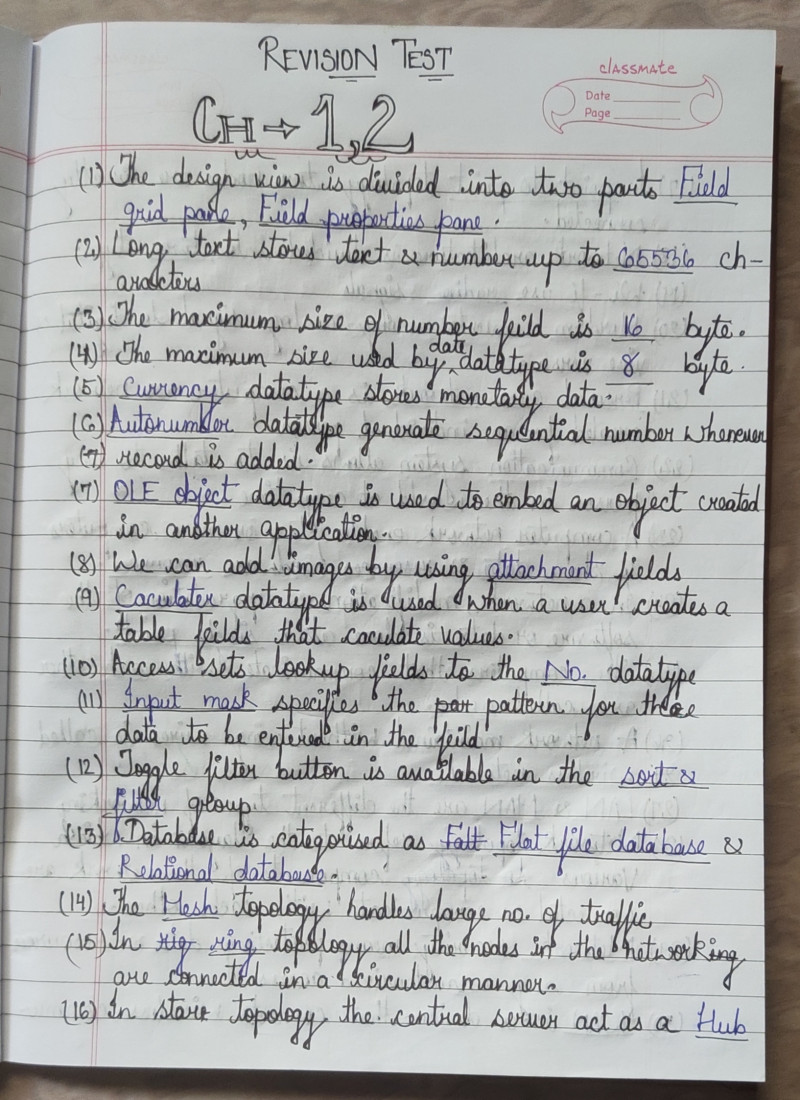 REVISION TEST
classmate
Date
Page
CH → 1,2
(1) The design view is divided into two parts Field
grid pane, Field properties pane.
(2) Long text stores text & number up to 65536 ch-
aracters
(3) The maximum size of number feild is 16 byte.
(4) The maximum size used by date datatype is 8 byte.
(5) Currency datatype stores monetary data.
(6) Autonumber datatype generate sequential number whenever
(7) record is added.
(7) OLE object datatype is used to embed an object created
in another application.
(8) We can add images by using attachment fields
(9) Caculater datatype is used when a user creates a
table feilds that caculate values.
(10) Access sets lookup fields to the No. datatype
(11) Input mask specifies the par pattern for the
data to be entered in the feild
(12) Toggle filter button is available in the sort &
filter group.
(13) Database is categorised as Falt Flat file database &
Relational database.
(14) The Mesh topology handles large no. of traffic
(15) In rig ring topology all the nodes in the networking
are connected in a circular manner.
(16) In star topology the central server act as a Hub